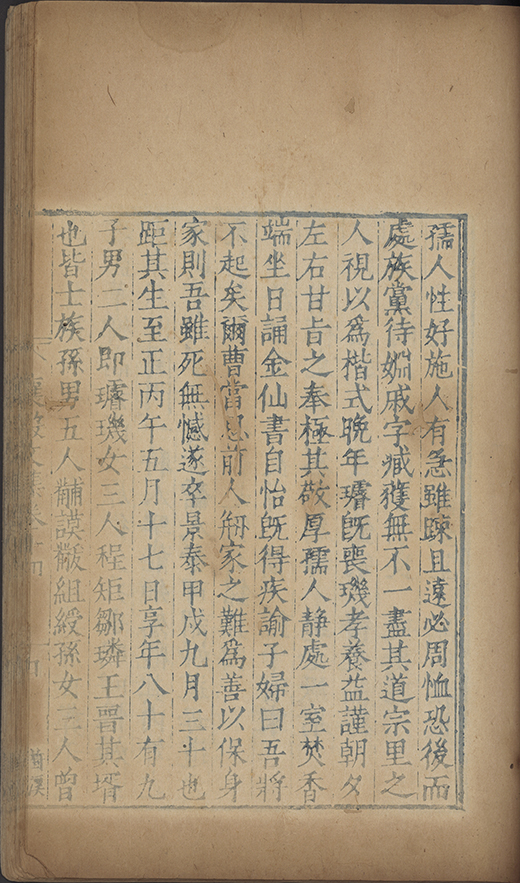 孺人性好施人有急雖踈且遠必周恤恐後而
處族黨待婣戚字臧獲無不一盡其道宗里之
人視以為楷式晚年璿旣喪璣孝養益謹朝夕
左右甘旨之奉極其敬厚孺人静處一室焚香
端坐日誦金仙書自怡旣得疾諭子婦曰吾將
不起矣爾曹當思前人剏家之難為善以保身
家則吾雖死無憾遂卒景泰甲戌九月三十也
距其生至正丙午五月十七日享年八十有九
子男二人即璿璣女三人程矩鄒璘王晋其壻
也皆士族孫男五人黼謨黻組綬孫女三人曾